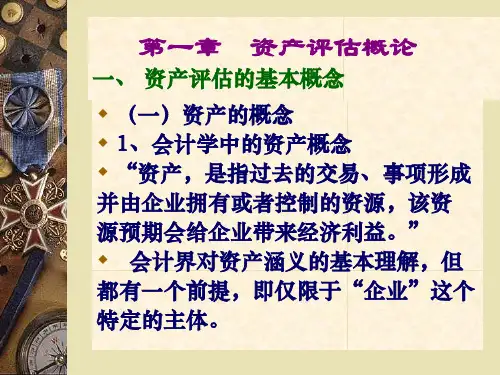 第一章 资产评估概论
一、 资产评估的基本概念
(一) 资产的概念
1、会计学中的资产概念
“资产，是指过去的交易、事项形成
并由企业拥有或者控制的资源，该资
源预期会给企业带来经济利益。”
会计界对资产涵义的基本理解，但
都有一个前提，即仅限于“企业”这个
特定的主体。